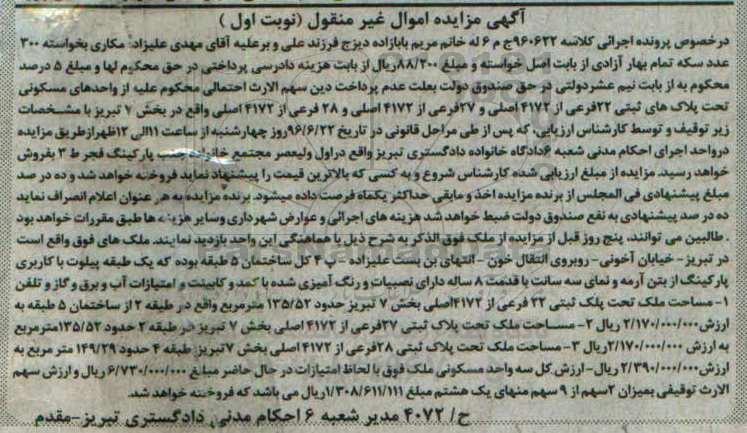 آگهی مزایده اموال غیر منقول (نوبت اول )
در خصوص پرونده اجرائی کلاسه ۹۶۰۶۲۲ج م ۶ له خانم مریم بابازاده دیزج فرزند علی و برعلیه آقای مهدی علیزاد: مکاری بخواسته ۳۰۰
عدد سکه تمام بهار آزادی از بابت اصل خواسته و مبلغ ۸۸/۲۰۰ریال از بابت هزینه دادرسی پرداختی در حق محکوم لها و مبلغ ۵ درصد
محکوم به از بابت نیم عشردولتی در حق صندوق دولت بعلت عدم پرداخت دین سهم الارث احتمالی محکوم علیه از واحدهای مسکونی
تحت پلاک های ثبتی ۲۲فرعی از ۴۱۷۲ اصلی و ۲۷فرعی از ۴۱۷۲ اصلی و ۲۸ فرعی از ۴۱۷۲ اصلی واقع در بخش ۷ تبریز با مشخصات
زیر توقیف و توسط کارشناس ارزیابی، که پس از طی مراحل قانونی در تاریخ ۹۶/۶/۲۲روز چهارشنبه از ساعت ۱۱الی ۱۲ظهرازطریق مزایده
درواحد اجرای احکام مدنی شعبه ۶دادگاه خانواده دادگستری تبریز واقع دراول ولیعصر مجتمع خانواده جنب پارکینگ فجر ط ۳ بفروش
خواهد رسید. مزایده از مبلغ ارزیابی شده کارشناس شروع و به کسی که بالاترین قیمت را پیشنهاد نماید فروخته خواهد شد و ده در صد
مبلغ پیشنهادی فی المجلس از برنده مزایده اخذ و مابقی حداکثر یکماه فرصت داده میشود. برنده مزایده به هر عنوان اعلام انصراف نماید
ده در صد پیشنهادی به نفع صندوق دولت ضبط خواهد شد هزینه های اجرائی و عوارض شهرداری وسایر هزینه ها طبق مقررات خواهد بود
. طالبین می توانند، پنج روز قبل از مزایده از ملک فوق الذکر به شرح ذیل با هماهنگی این واحد بازدید نمایند. ملک های فوق واقع است
در تبریز- خیابان آخونی- روبروی انتقال خون - انتهای بن بست علیزاده پ ۴ کل ساختمان ۵ طبقه بوده که یک طبقه پیلوت با کاربری
پارکینگ از بتن آرمه و نمای سه سانت با قدمت ۸ ساله دارای نصبیات و رنگ آمیزی شده با کمد و کابینت و امتیازات آب و برق و گاز و تلفن
۱- مساحت ملک تحت پلک ثبتی ۲۲ فرعی از ۴۱۷۲اصلی بخش ۷ تبریز حدود ۱۳۵/۵۲ مترمربع واقع در طبقه ۲ از ساختمان ۵ طبقه به
ارزش۲/۱۷۰/۰۰۰/۰۰۰ ریال ۲- مساحت ملک تحت پلاک ثبتی ۲۷فرعی از ۴۱۷۲ اصلی بخش ۷ تبریز در طبقه ۲ حدود ۱۳۵/۵۲مترمربع
به ارزش ۲/۱۷۰/۰۰۰/۰۰۰ریال ۳- مساحت ملک تحت پلاک ثبتی ۲۸فرعی از ۴۱۷۲ اصلی بخش ۷تبریز، طبقه ۴ حدود ۱۴۹/۲۹ متر مربع به
ارزش ۲/۳۹۰/۰۰۰/۰۰۰ ریال- ارزش کل سه واحد مسکونی ملک فوق با لحاظ امتیازات در حال حاضر مبلغ ۶/۷۳۰/۰۰۰/۰۰۰ ریال و ارزش سهم
الارث توقیفی بمیزان ۲سهم از ۹ سهم منهای یک هشتم مبلغ ۱/۳۰۸/۶۱۱/۱۱۱ریال می باشد که فروخته خواهد شد.
ح/ ۴۰۷۲ مدیر شعبه ۶ احکام مدنی دادگستری تبریز-مقدم